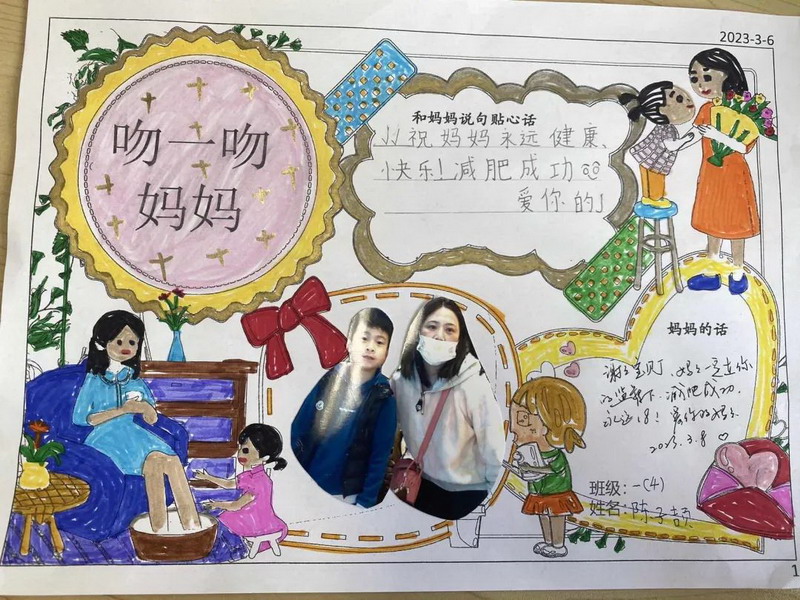 2023-3-6
吻一吻
妈妈
和妈妈说句贴心话
祝妈妈永远健康、
快乐!减肥成功
爱你的
妈妈的话
谢谢宝贝丁,妈妈一定在你
的监督下,减肥成功,
永远18!爱你的妈妈
2023.3.8
班级:一(4)
姓名:陈子
1